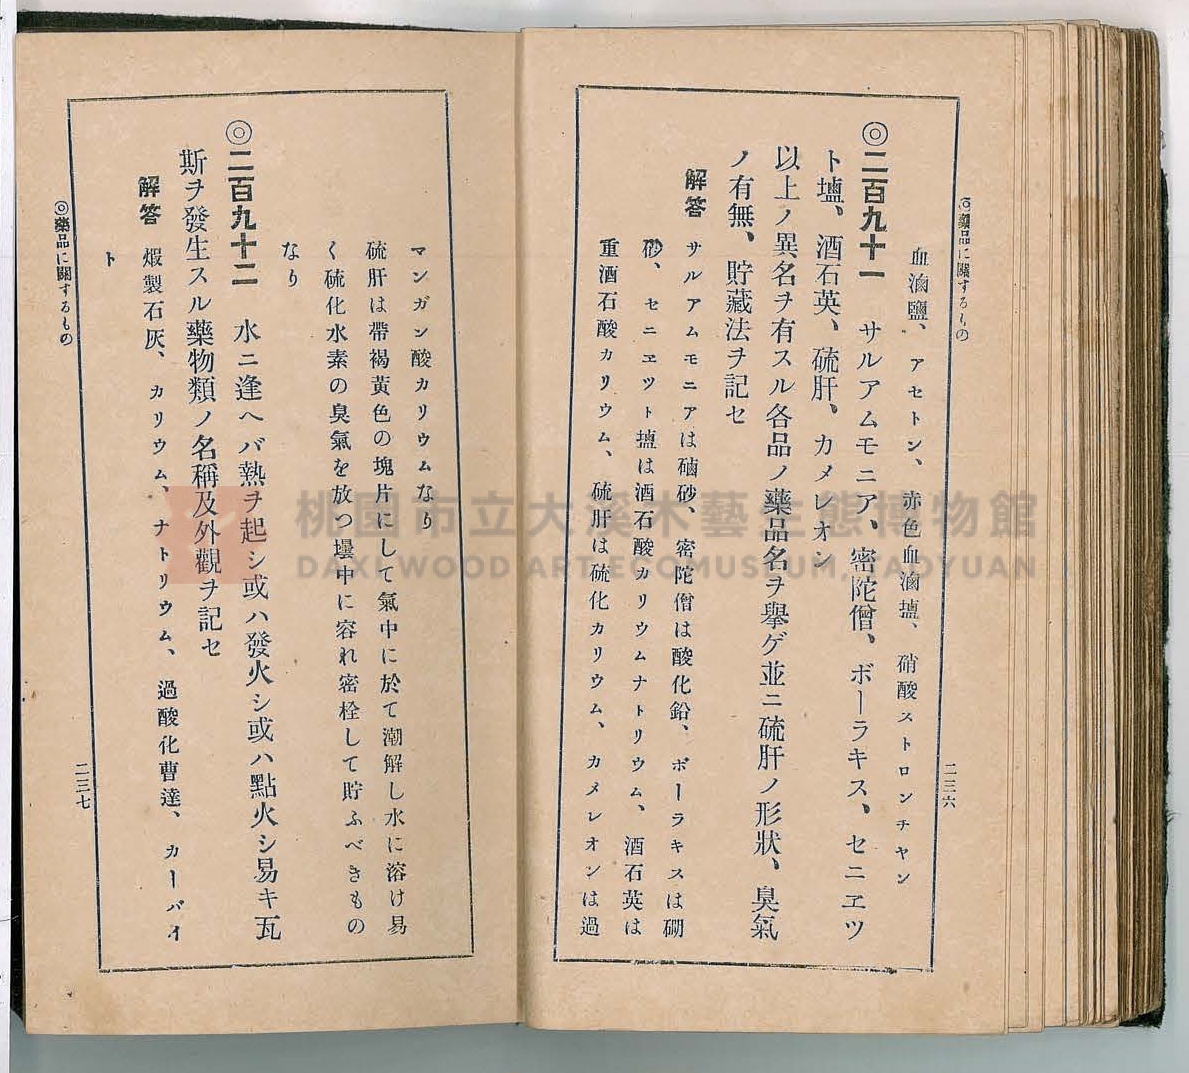 ◎藥品に關するもの
二三六
血滷鹽、アセトン、赤色血滷塩、硝酸ストロンチヤン
◎二百九十一　サルアムモニア、密陀僧、ボーラキス、セニヱツ
ト塩、酒石英、硫肝、カメレオン
以上ノ異名ヲ有スル各品ノ藥品名ヲ擧ゲ並ニ硫肝ノ形狀、臭氣
ノ有無、貯藏法ヲ記セ
解答　サルアムモニアは磠砂、密陀僧は酸化鉛、ボーラキスは硼
砂、セニヱツト塩は酒石酸カリウムナトリウム、酒石英は
重酒石酸カリウム、硫肝は硫化カリウム、カメレオンは過
マンガン酸カリウムなり
硫肝は帶褐黃色の塊片にして氣中に於て潮解し水に溶け易
く硫化水素の臭氣を放つ壜中に容れ密栓して貯ふべきもの
なり
◎二百九十二　水ニ逢ヘバ熱ヲ起シ或ハ發火シ或ハ點火シ易キ瓦
斯ヲ發生スル藥物類ノ名稱及外觀ヲ記セ
解答　煆製石灰、カリウム、ナトリウム、過酸化曹達、カーバイ
ト
◎藥品に關するもの
二三七
桃園市立大溪木藝生態博物館
DAXI WOOD ART ECOMUSEUM, TAOYUAN